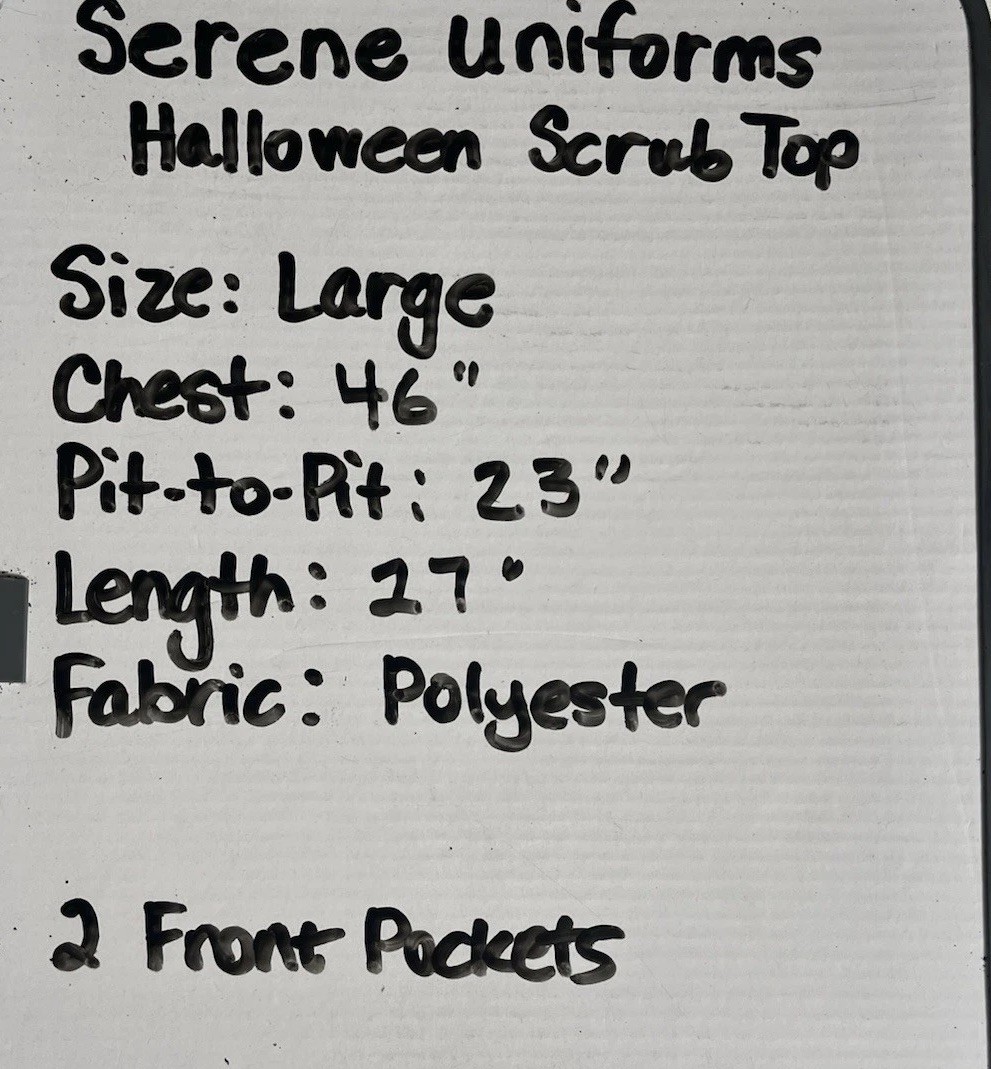 Serene Uniforms
Halloween Scrub Top
Size: Large
Chest: 46"
Pit-to-Pit: 23"
Length: 27"
Fabric: Polyester
2 Front Pockets